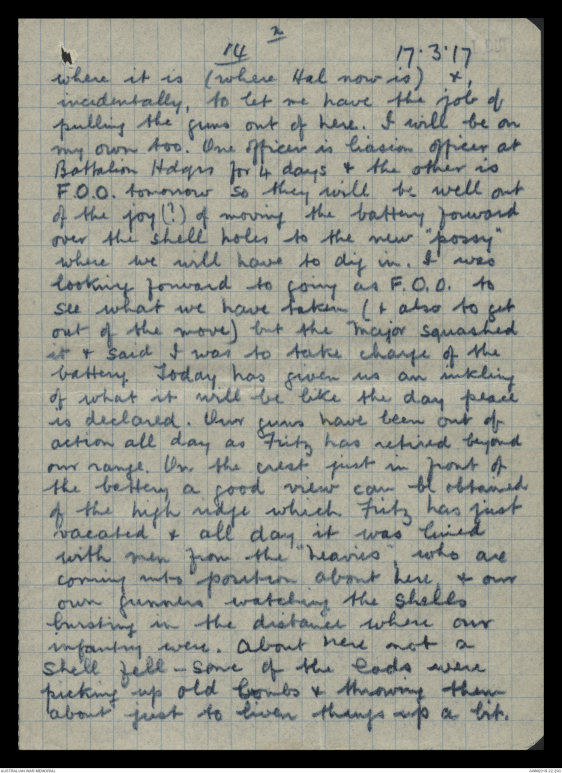 2
14 17.3.17
where it is (where Hal now is) &,
incidentally, to let me have the job of
pulling the guns out of here. I will be on
my own too. One officer is liasion officer at
Battalion Hdqrs for 4 days & the other is
F.O.O. tomorrow so they will be well out
of the joy (?) of moving the battery forward
over the shell holes to the new "possy"
where we will have to dig in. I was
looking forward to going as F.O.O. to
see what we have taken (& also to get
out of the move) but the Major squashed
it & said I was to take charge of the
battery. Today has given us an inkling
of what it will be like the day peace
is declared. Our guns have been out of
action all day as Fritz has retired beyond
our range. On the crest just in front of
the battery a good view can be obtained
of the high ridge which Fritz has just
vacated & all day it was lined
with men from the "heavies", who are
coming into position about here, & our
own gunners watching the shells
bursting in the distance where our
infantry were. About here not a
shell fell - some of the lads were
picking up old bombs & throwing them
about just to liven things up a bit.
AUSTRALIAN WAR MEMORIAL